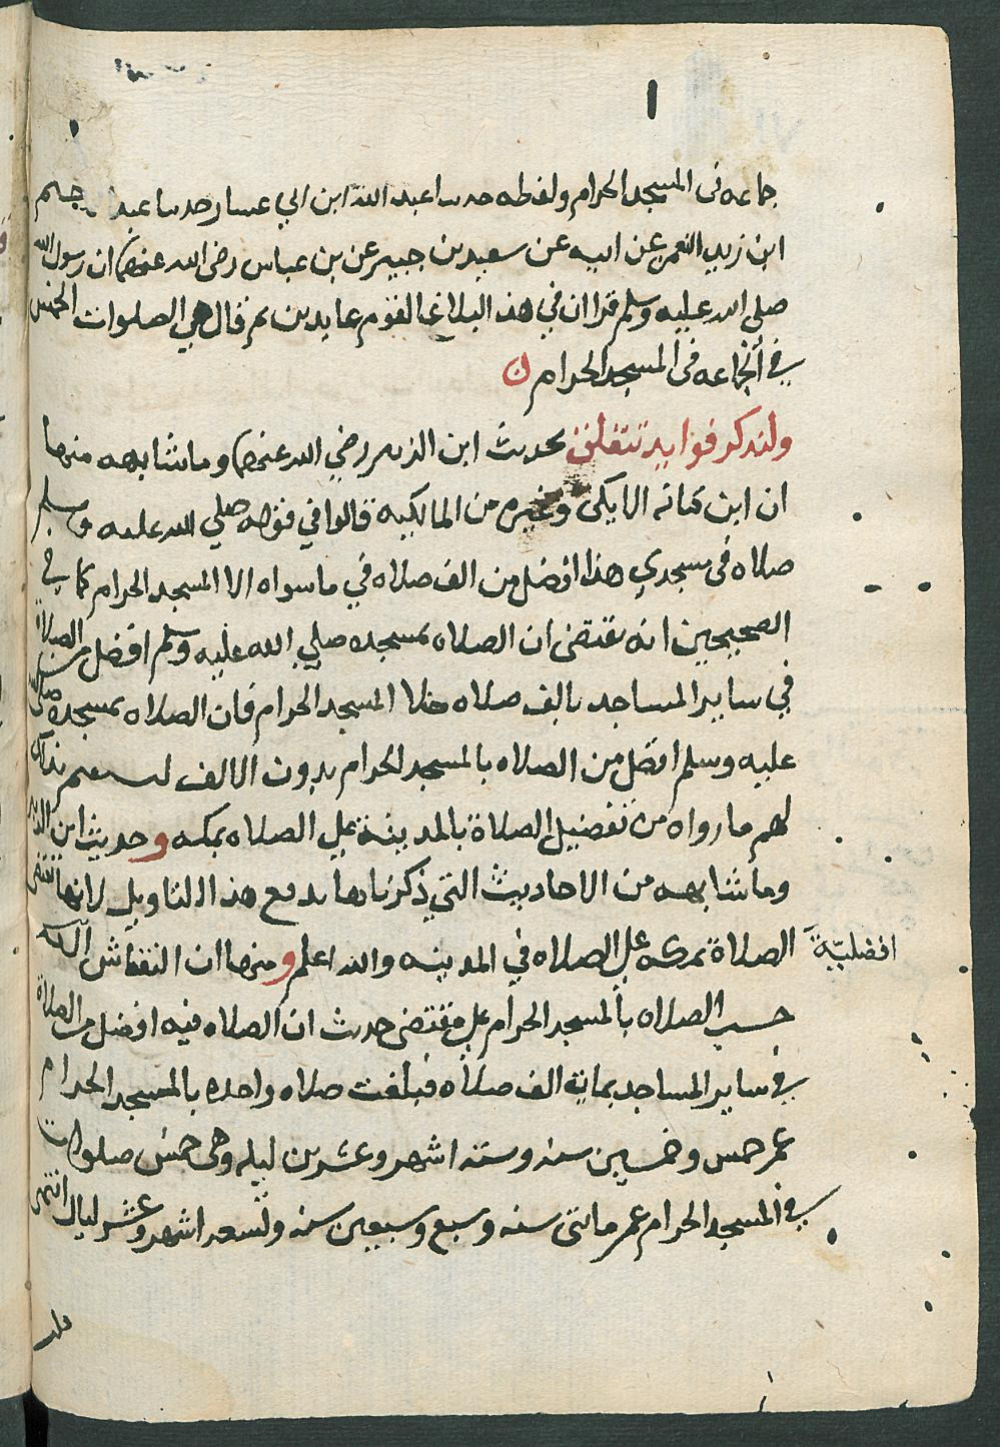 ١
جماعه فى المسجد الحرام ولفظه حدسا عبد الله ابن ابي عسار حدسا عبد الرحيم
ابن زيد العمى عن ابيه عن سعيد بن جبير عن بن عباس رضى الله عنهما ان رسول الله
صلى الله عليه وسلم قرا ان في هذا البلاغا لقوم عابدين ثم قال هي الصلوات الخمس
في الجماعه فى المسجد الحرام ن
ولنذكر فوايد تتعلق بحديث ابن الزبير رضي الله عنهما وما شابهه منها
ان ابن كنانه المالكي وغيره من المالكيه قالوا في قوله صلي الله عليه وسلم
صلاه فى مسجدي هذا افضل من الف صلاه في ما سواه الا المسجد الحرام كما في
الصحيحين انه يقتضى ان الصلاه بمسجده صلي الله عليه وسلم افضل من الصلاة
في ساير المساجد بالف صلاه خلا المسجد الحرام فان الصلاه بمسجده صلى الله
عليه وسلم افضل من الصلاه بالمسجد الحرام بدون الالف
لهم ما رواه من تفضيل الصلاة بالمدينة على الصلاه بمكه وحديث ابن الزبير
وما شابهه من الاحاديث التي ذكرناها يدفع هذا التاويل لانها تقتضى
افضليّة الصلاة بمكه على الصلاه في المدينه والله اعلم ومنها ان النقاش
حسب الصلاه بالمسجد الحرام على مقتضى حديث ان الصلاه فيه افضل من الصلاة
في ساير المساجد بماية الف صلاه فبلغت صلاه واحده بالمسجد الحرام
عمر خمس وخمسين سنه وستة اشهر وعشرين ليله وهى خمس صلوات
في المسجد الحرام عمر مائتى سنه وسبع وسبعين سنه وتسعه اشهر وعشر ليال انتهى